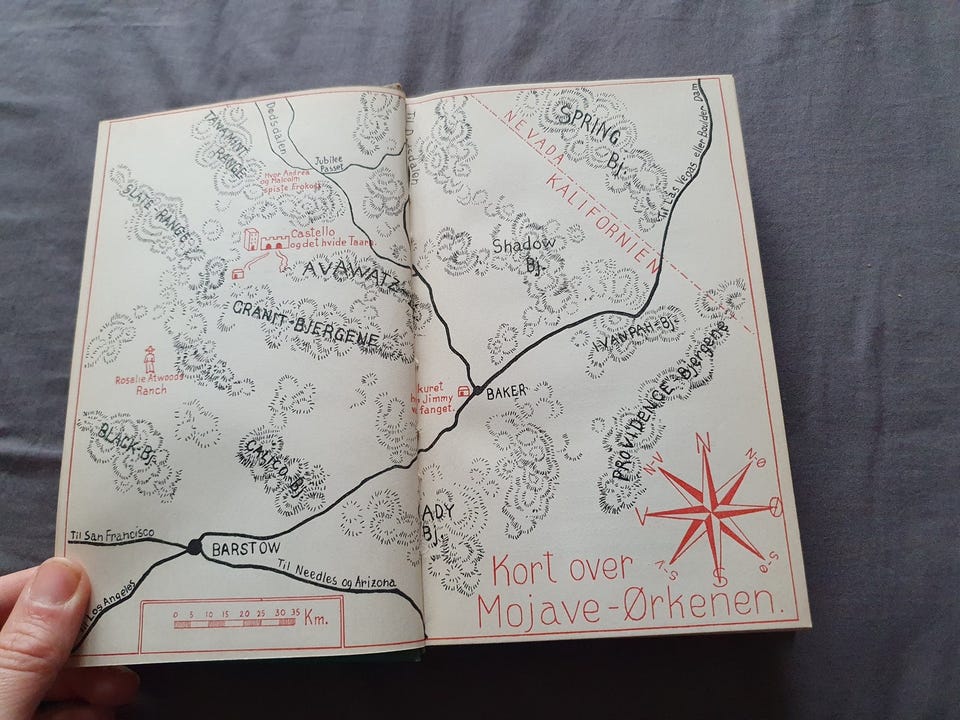 Dødsdalen
TANKMINT
RANGE
Jubilee
Passet
Hvor Andrea
og Malcolm
spiste Frokost
SLATE-RANGE
Castello
og det hvide Taarn.
AVAWATZ
GRANIT-BJERGENE
Rosalie Atwoods
Ranch
BLACK-Bj.
CALICO
Bj.
Til San Francisco
BARSTOW
Til Needles og Arizona
Til Los Angeles
0 5 10 15 20 25 30 35 Km.
NEVADA
KALIFORNIEN
SPRING
Bj.
Til Las Vegas eller Boulder Dam
Shadow
Bj.
IVANPAH-Bj.
PROVIDENCE-Bjergene
Jimmy
fanget.
BAKER
ADY
Bj.
N
N-Ø
Ø
S-Ø
S
S-V
V
N-V
Kort over
Mojave-Ørkenen.